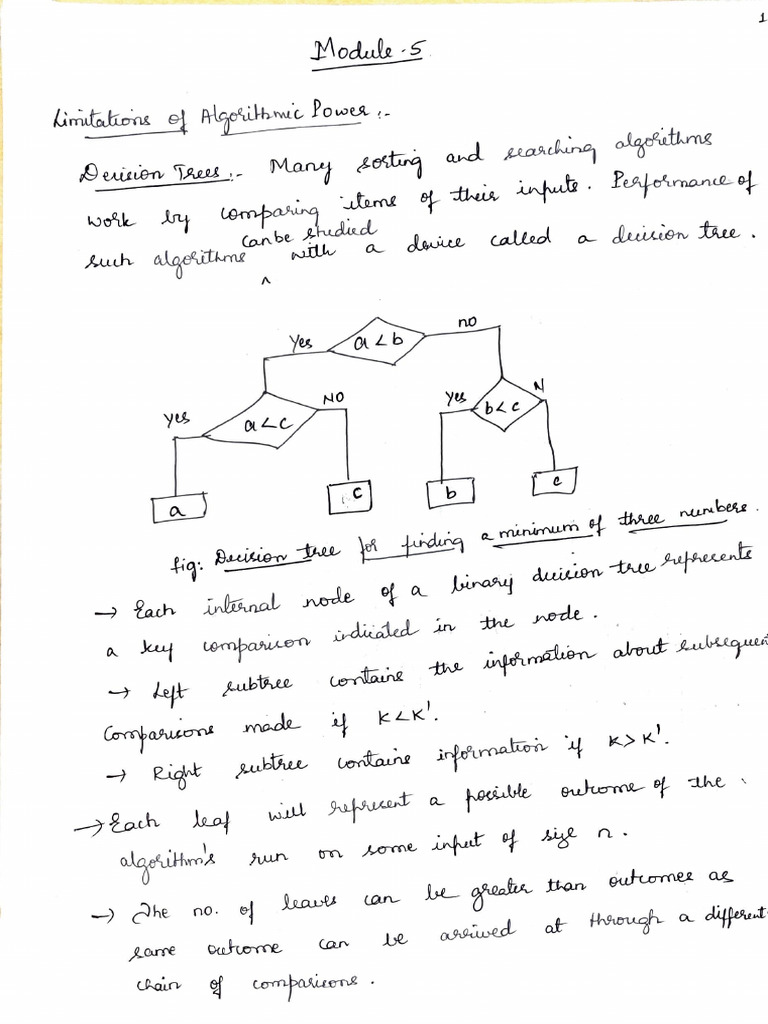 1
Module-5
Limitations of Algorithmic Power:-
Decision Trees:- Many sorting and searching algorithms
work by comparing items of their inputs. Performance of
can be studied
such algorithms ^ with a device called a decision tree.
no
Yes
a<b
NO
Yes
N
yes
a<c
b<c
a
c
b
c
fig: Decision tree for finding a minimum of three numbers.
→ Each internal node of a binary decision tree represents
a key comparison indicated in the node.
→ Left subtree contains the information about subsequent
comparisons made if K<K'.
→ Right subtree contains information if K>K'.
→ Each leaf will represent a possible outcome of the
algorithm's run on some input of size n.
→ The no. of leaves can be greater than outcomes as
same outcome can be arrived at through a different
chain of comparisons.